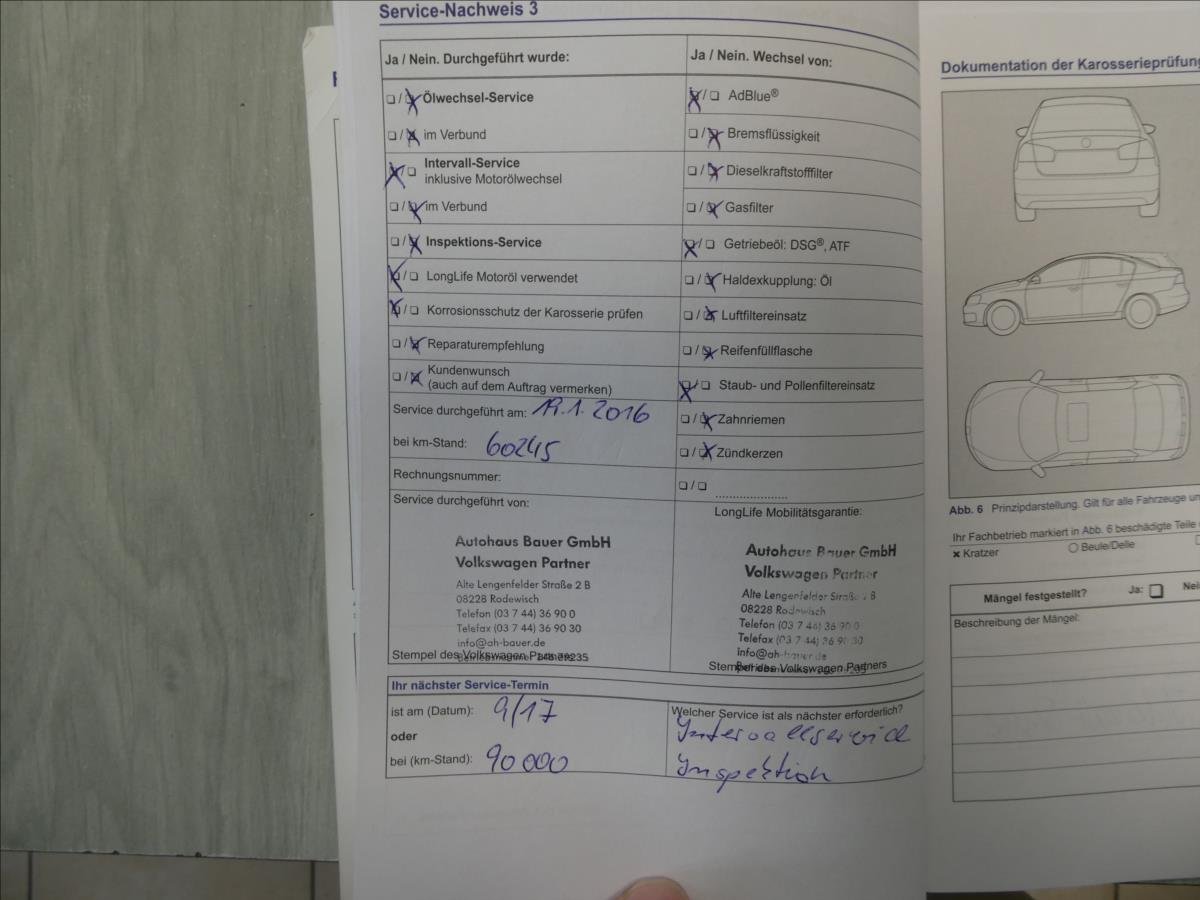 Service-Nachweis 3
Ja / Nein. Durchgeführt wurde:
Ölwechsel-Service
im Verbund
Intervall-Service
inklusive Motorölwechsel
im Verbund
Inspektions-Service
LongLife Motoröl verwendet
Korrosionsschutz der Karosserie prüfen
Reparaturempfehlung
Kundenwunsch
(auch auf dem Auftrag vermerken)
Service durchgeführt am: 19.1.2016
bei km-Stand: 60245
Rechnungsnummer:
Service durchgeführt von:
Autohaus Bauer GmbH
Volkswagen Partner
Alte Lengenfelder Straße 2 B
08228 Rodewisch
Telefon (03 7 44) 36 90 0
Telefax (03 7 44) 36 90 30
info@ah-bauer.de
Stempel des Volkswagen Partners
Ja / Nein. Wechsel von:
AdBlue®
Bremsflüssigkeit
Dieselkraftstofffilter
Gasfilter
Getriebeöl: DSG®, ATF
Haldexkupplung: Öl
Luftfiltereinsatz
Reifenfüllflasche
Staub- und Pollenfiltereinsatz
Zahnriemen
Zündkerzen
LongLife Mobilitätsgarantie:
Autohaus Bauer GmbH
Volkswagen Partner
Alte Lengenfelder Straße 2 B
08228 Rodewisch
Telefon (03 7 44) 36 90 0
Telefax (03 7 44) 36 90 30
info@ah-bauer.de
Stempel des Volkswagen Partners
Ihr nächster Service-Termin
ist am (Datum): 9/17
oder
bei (km-Stand): 90 000
Welcher Service ist als nächster erforderlich?
Intervallservice
Inspektion
Dokumentation der Karosserieprüfung
Abb. 6 Prinzipdarstellung. Gilt für alle Fahrzeuge
Ihr Fachbetrieb markiert in Abb. 6 beschädigte Teile
Kratzer
Beule/Delle
Mängel festgestellt? Ja:
Beschreibung der Mängel: